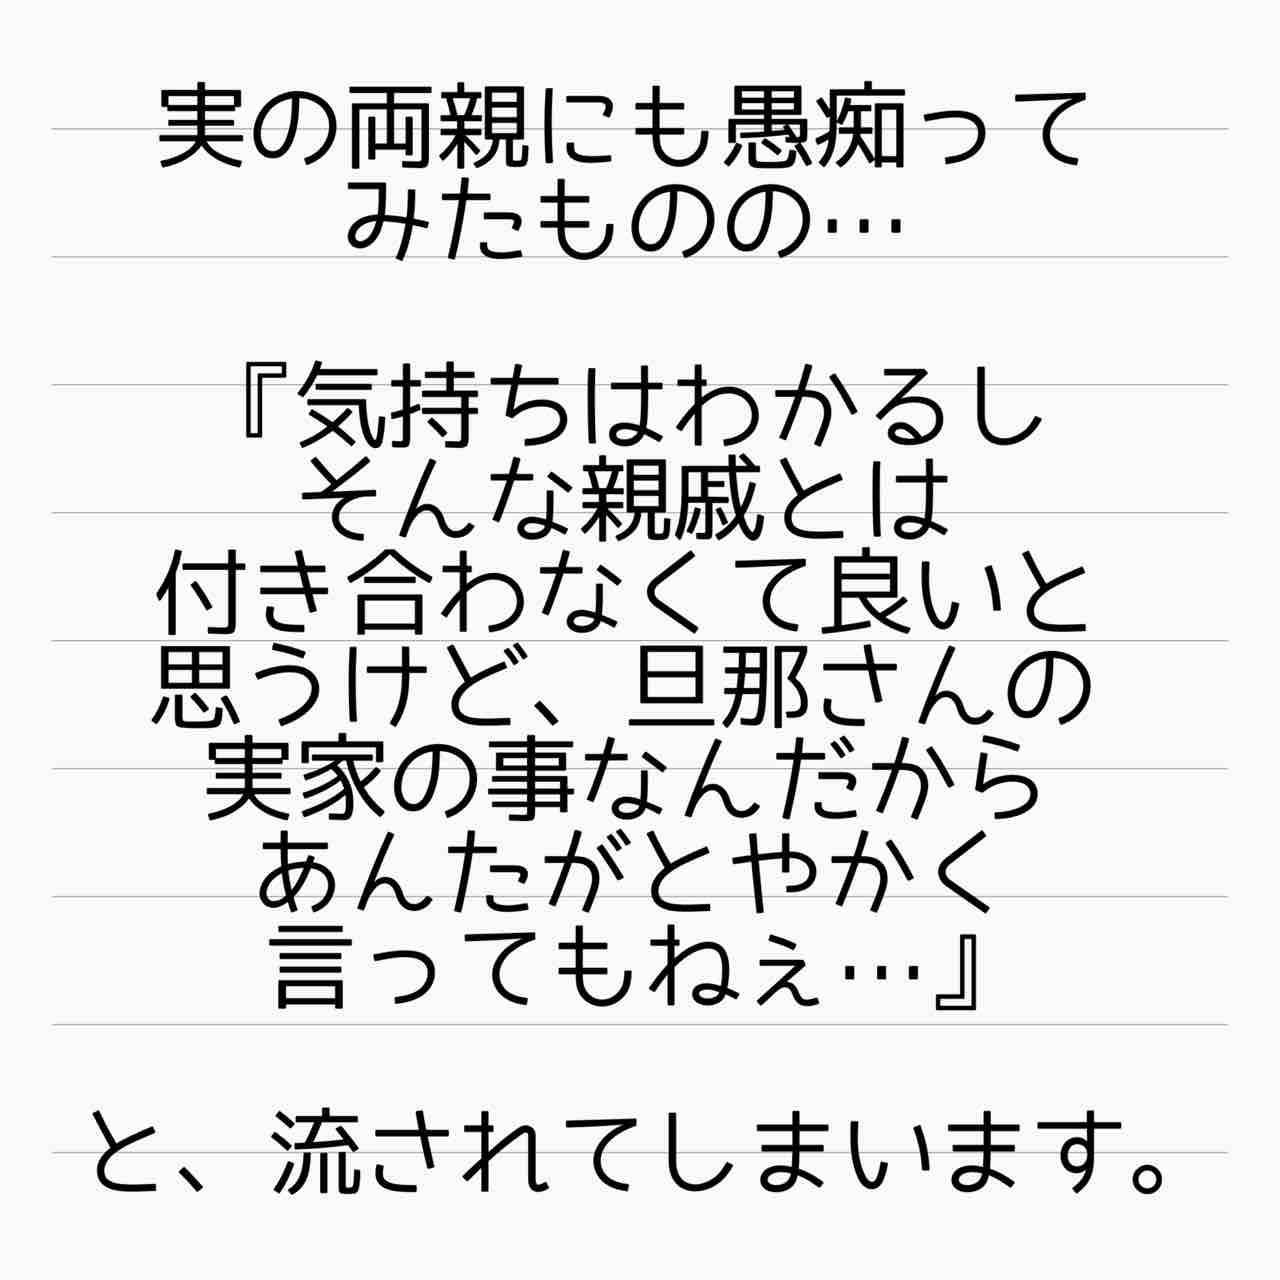 実の両親にも愚痴って
みたものの…
『気持ちはわかるし
そんな親戚とは
付き合わなくて良いと
思うけど、旦那さんの
実家の事なんだから
あんたがとやかく
言ってもねぇ…』
と、流されてしまいます。